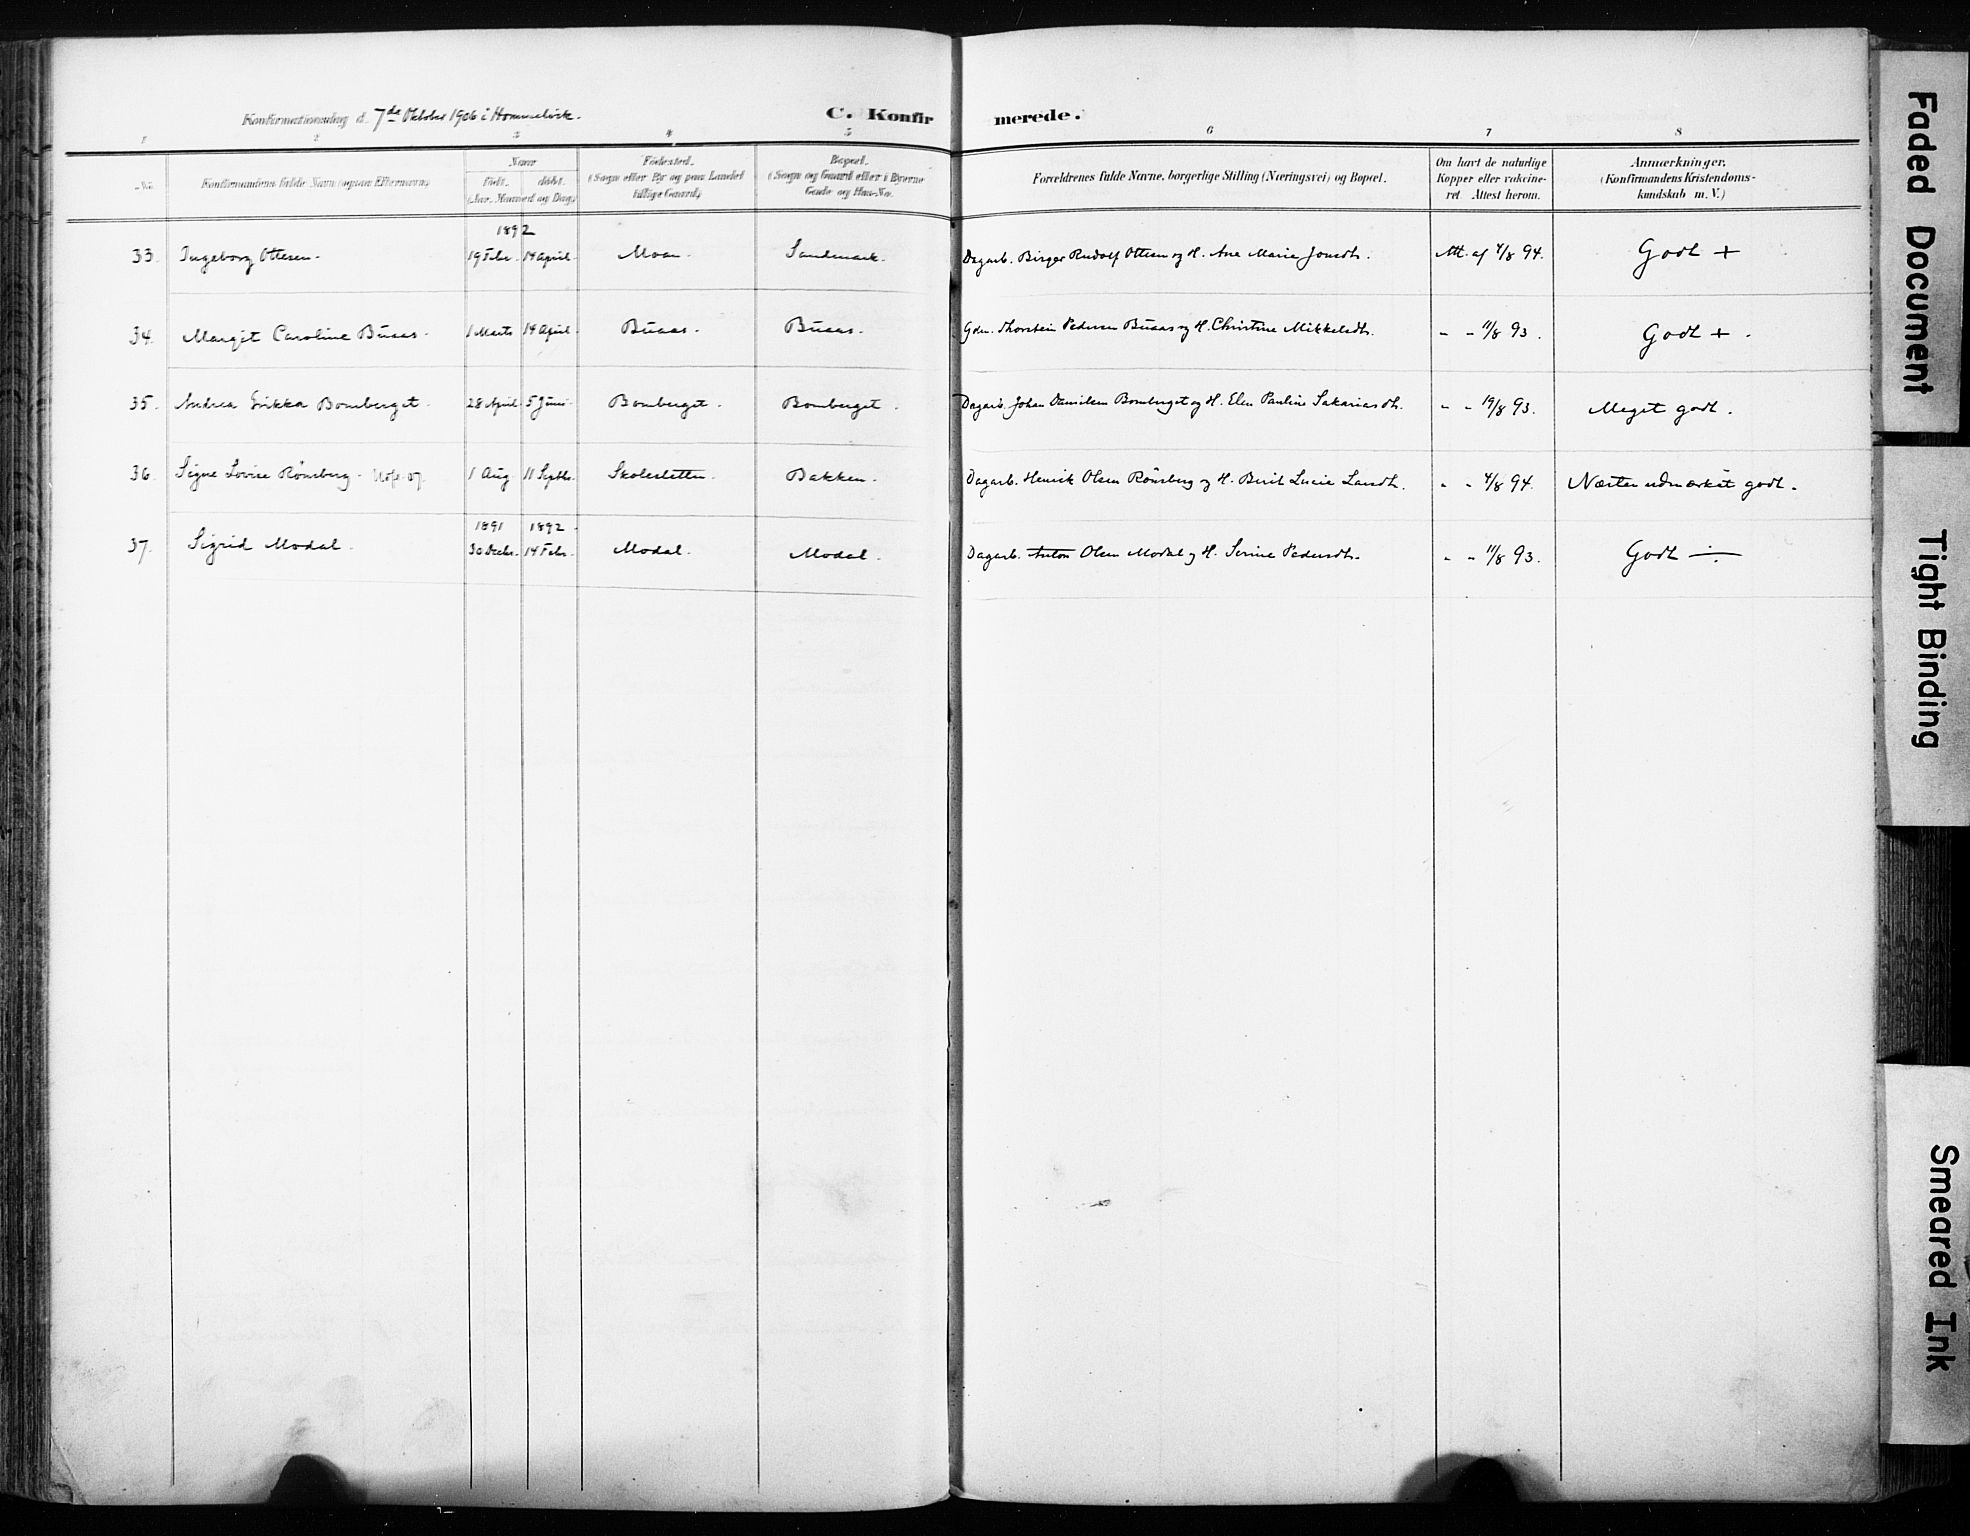 Konfirmationsdag d. 7de Oktober 1906 i Hommelvik.
C. Konfirmerede.
1 2 3 4 5 6 7 8
No.
Konfirmandens fulde Navn (ogsaa Efternavn)
Naar
Født. døbt.
(Aar, Maaned og Dag)
Fødested.
(Sogn eller By og paa Landet
tillige Gaard)
Bopæl.
(Sogn og Gaard eller i Byerne
Gade og Hus-No.
Forældrenes fulde Navne, borgerlige Stilling (Næringsvei) og Bopæl.
Om havt de naturlige
Kopper eller vakcine-
ret. Attest herom.
Anmærkninger.
(Konfirmandens Kristendoms-
kundskab m. V.)
1892
33. Ingeborg Ottesen. 19 Febr. 14 April. Moan. Sandmark. Dagarb. Birger Rudolf Ottesen og H. Ane Marie Jonsdtr. Att. af 4/8 94. Godt +
34. Margit Caroline Buaas. 1 Marts 14 April. Buaas. Buaas. Gdm. Thorstein Pedersen Buaas og H. Christine Mikkelsdtr. " " 11/8 93. Godt + .
35. Andrea Erikka Bomberget. 28 April 5 Juni. Bomberget. Bomberget. Dagarb. Johan Danielsen Bomberget og H. Elen Pauline Sakariasdtr. " " 19/8 93. Meget godt.
36. Signe Lovise Rönsberg. 1 Aug. 11 Septbr. Skolesletten. Bakken. Dagarb. Henrik Olsen Rönsberg og H. Berit Lucie Larsdtr. " " 4/8 94. Næsten udmærket godt.
1891 1892
37. Sigrid Modal. 30 Decbr. 14 Febr. Modal. Modal. Dagarb. Anton Olsen Modal og H. Serine Pedersdtr. " " 11/8 93. Godt ÷
Faded Document
Tight Binding
Smeared Ink